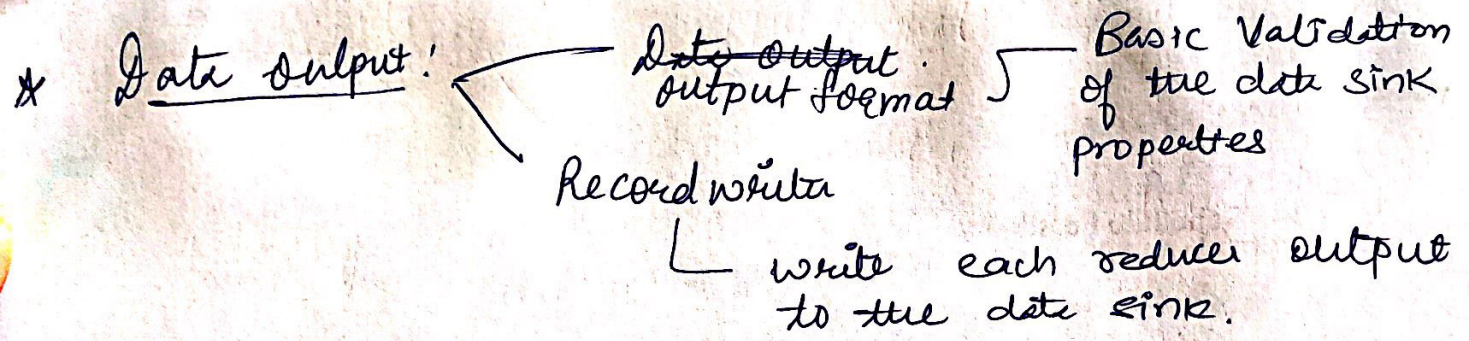 * Data output:
Data output.
output format
Basic Validation
of the data sink
properties
Record writer
write each reducer output
to the data sink.